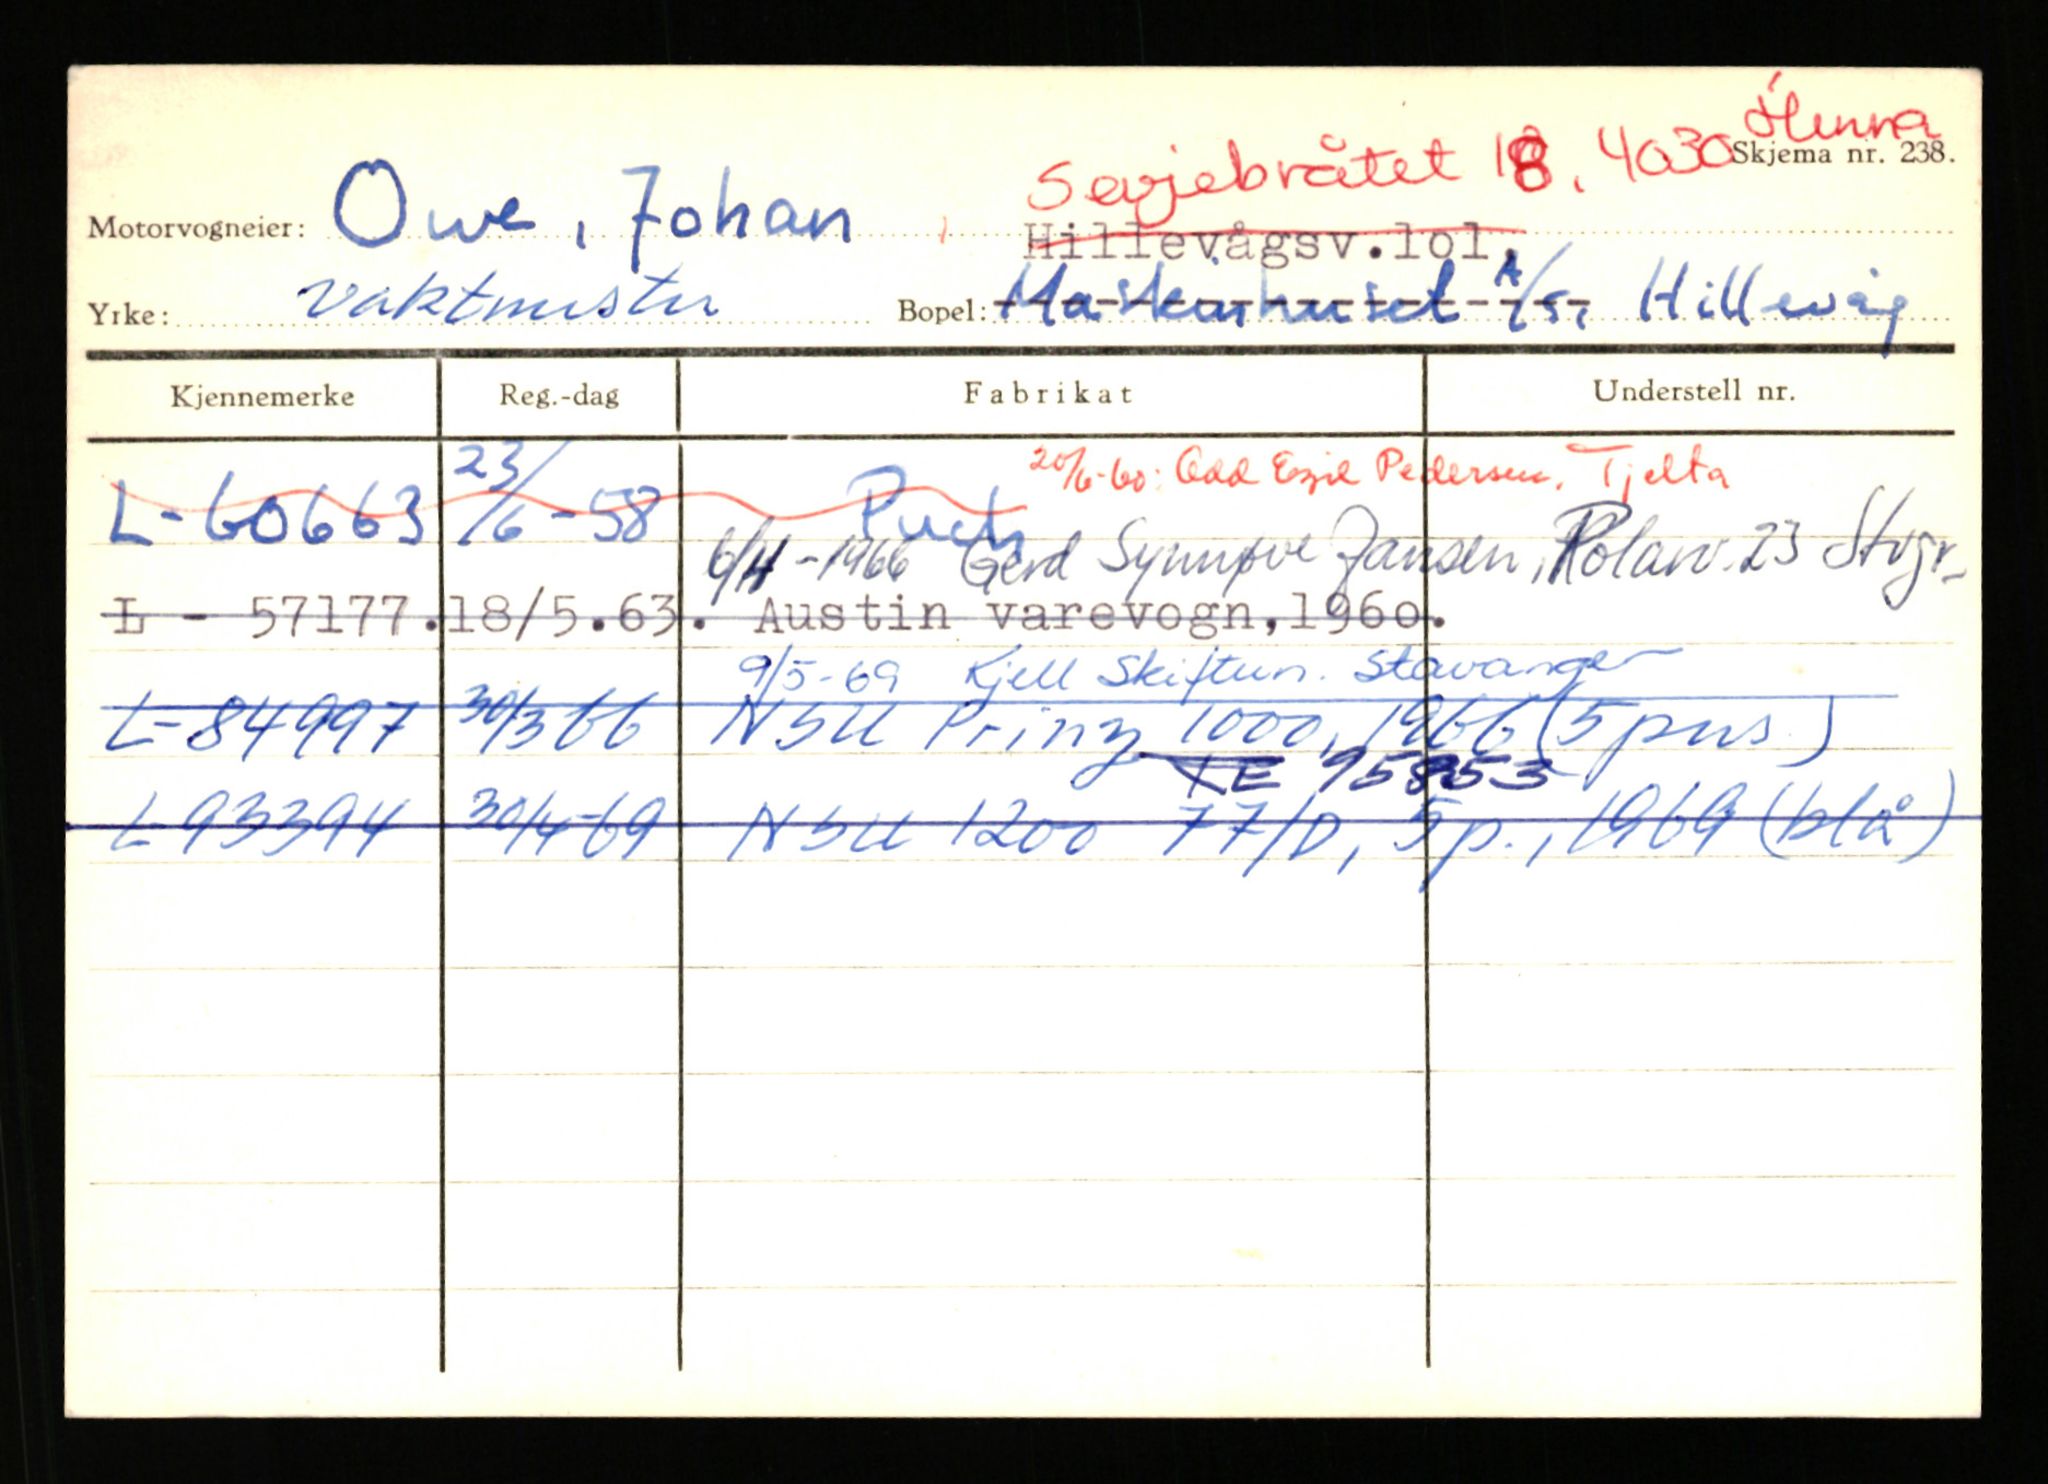 Hinna
Sevjebråtet 18, 4030 Skjema nr. 238.
Motorvogneier: Owe, Johan
Hillevågsv.lol.
Yrke: vaktmester Bopel: Maskinhuset A/S, Hillevåg
Kjennemerke Reg.-dag Fabrikat Understell nr.
20/6-60: Odd Egil Pedersen, Tjelta
L-60663 23/6-58 Puch
6/4-1966 Gerd Synnøve Jansen, Polarv. 23 Stvgr.
L - 57177. 18/5.63. Austin varevogn,196o.
9/5-69 Kjell Skiftun. Stavanger
L-84997 30/3 66 NSU Prinz 1000, 1966 (5 pers.)
KE 95853
L-93394 30/4-69 NSU 1200 77/D, 5p., 1969 (blå)